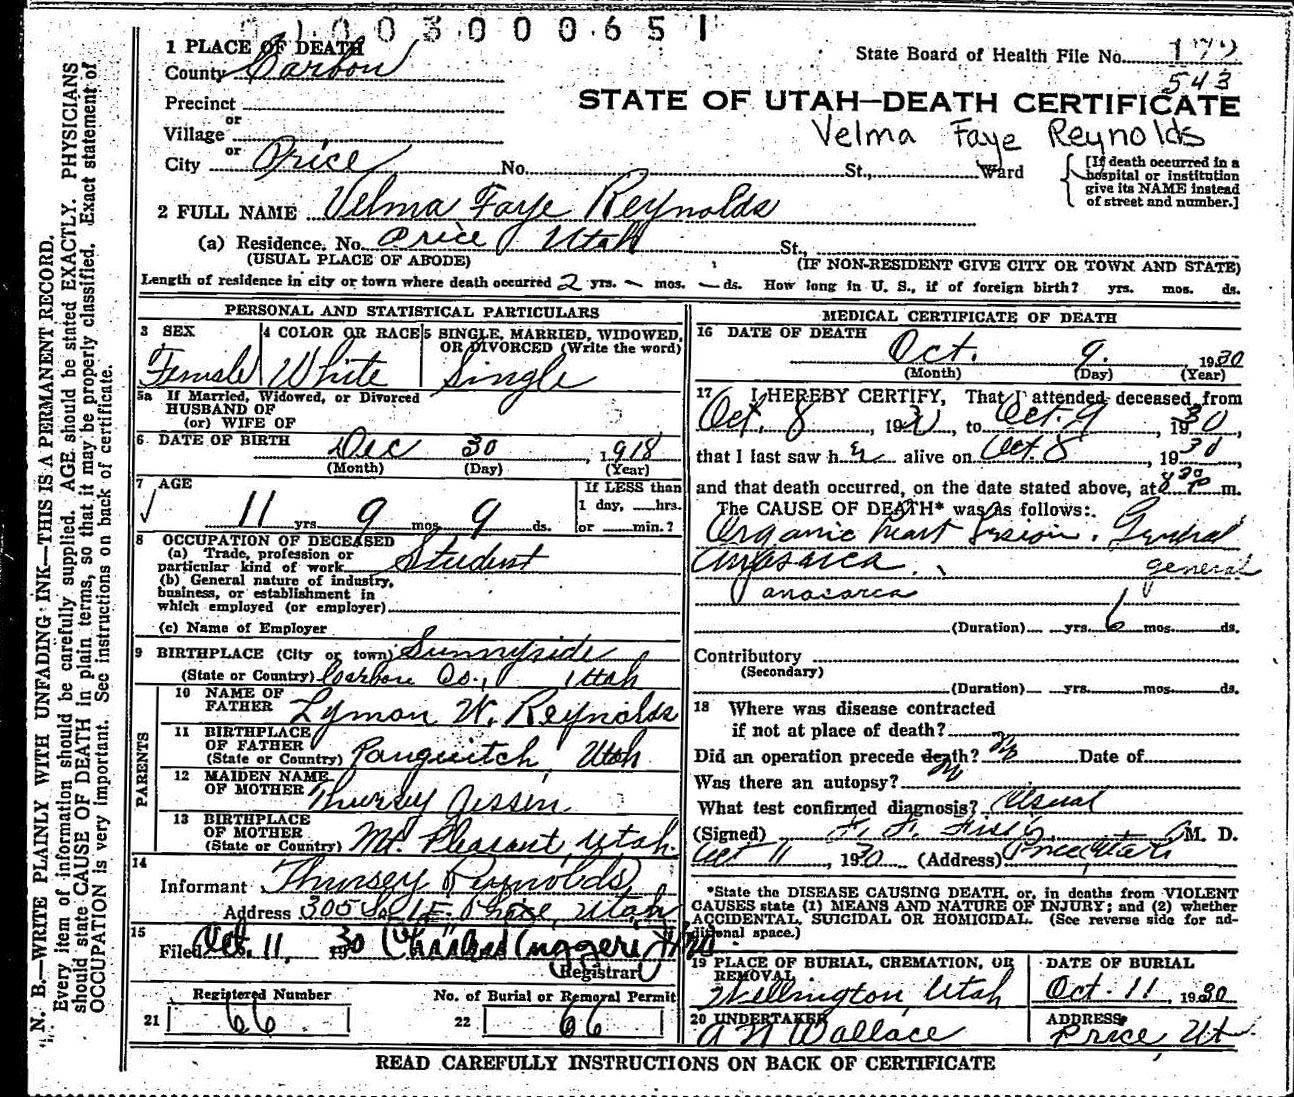 01003000651
1 PLACE OF DEATH
County Carbon
State Board of Health File No. 177
543
Precinct
or
Village
or
City Price No. St., Ward
STATE OF UTAH—DEATH CERTIFICATE
Velma Faye Reynolds
[If death occurred in a hospital or institution give its NAME instead of street and number.]
2 FULL NAME Velma Faye Reynolds
(a) Residence. No. Price Utah St.,
(USUAL PLACE OF ABODE) (IF NON-RESIDENT GIVE CITY OR TOWN AND STATE)
Length of residence in city or town where death occurred 2 yrs. — mos. — ds. How long in U. S., if of foreign birth? yrs. mos. ds.
PERSONAL AND STATISTICAL PARTICULARS
3 SEX Female
4 COLOR OR RACE White
5 SINGLE, MARRIED, WIDOWED, OR DIVORCED (Write the word) Single
5a If Married, Widowed, or Divorced
HUSBAND OF
(or) WIFE OF
6 DATE OF BIRTH Dec 30, 1918
(Month) (Day) (Year)
7 AGE
11 yrs. 9 mos. 9 ds.
If LESS than
1 day, hrs.
or min.?
8 OCCUPATION OF DECEASED
(a) Trade, profession or
particular kind of work Student
(b) General nature of industry,
business, or establishment in
which employed (or employer)
(c) Name of Employer
9 BIRTHPLACE (City or town) Sunnyside
(State or Country) Carbon Co., Utah
PARENTS
10 NAME OF
FATHER Lyman W. Reynolds
11 BIRTHPLACE
OF FATHER
(State or Country) Panguitch, Utah
12 MAIDEN NAME
OF MOTHER Thursey Jessen
13 BIRTHPLACE
OF MOTHER
(State or Country) Mt. Pleasant, Utah.
14
Informant Thursey Reynolds
Address 305 So. 1 E. Price, Utah
15
Filed Oct. 11, 1930
Registrar
Registered Number
21 66
No. of Burial or Removal Permit
22 66
MEDICAL CERTIFICATE OF DEATH
16 DATE OF DEATH
Oct. 9. 1930
(Month) (Day) (Year)
17 I HEREBY CERTIFY, That I attended deceased from
Oct. 8, 1930, to Oct. 9, 1930,
that I last saw her alive on Oct. 8, 1930,
and that death occurred, on the date stated above, at m.
The CAUSE OF DEATH* was as follows:
Organic heart lesion. General
Anasarca. general
anasarca
(Duration) yrs. 6 mos. ds.
Contributory
(Secondary)
(Duration) yrs. mos. ds.
18 Where was disease contracted
if not at place of death?
Did an operation precede death? No Date of
Was there an autopsy? No
What test confirmed diagnosis? Usual
(Signed) M. D.
Oct 11, 1930 (Address) Price, Utah
*State the DISEASE CAUSING DEATH, or, in deaths from VIOLENT
CAUSES state (1) MEANS AND NATURE OF INJURY; and (2) whether
ACCIDENTAL, SUICIDAL OR HOMICIDAL. (See reverse side for ad-
ditional space.)
19 PLACE OF BURIAL, CREMATION, OR
REMOVAL
Wellington, Utah
DATE OF BURIAL
Oct. 11, 1930
20 UNDERTAKER
A N Wallace
ADDRESS
Price, Ut.
READ CAREFULLY INSTRUCTIONS ON BACK OF CERTIFICATE
N. B.—WRITE PLAINLY WITH UNFADING INK—THIS IS A PERMANENT RECORD.
Every item of information should be carefully supplied. AGE should be stated EXACTLY. PHYSICIANS
should state CAUSE OF DEATH in plain terms, so that it may be properly classified. Exact statement of
OCCUPATION is very important. See instructions on back of certificate.